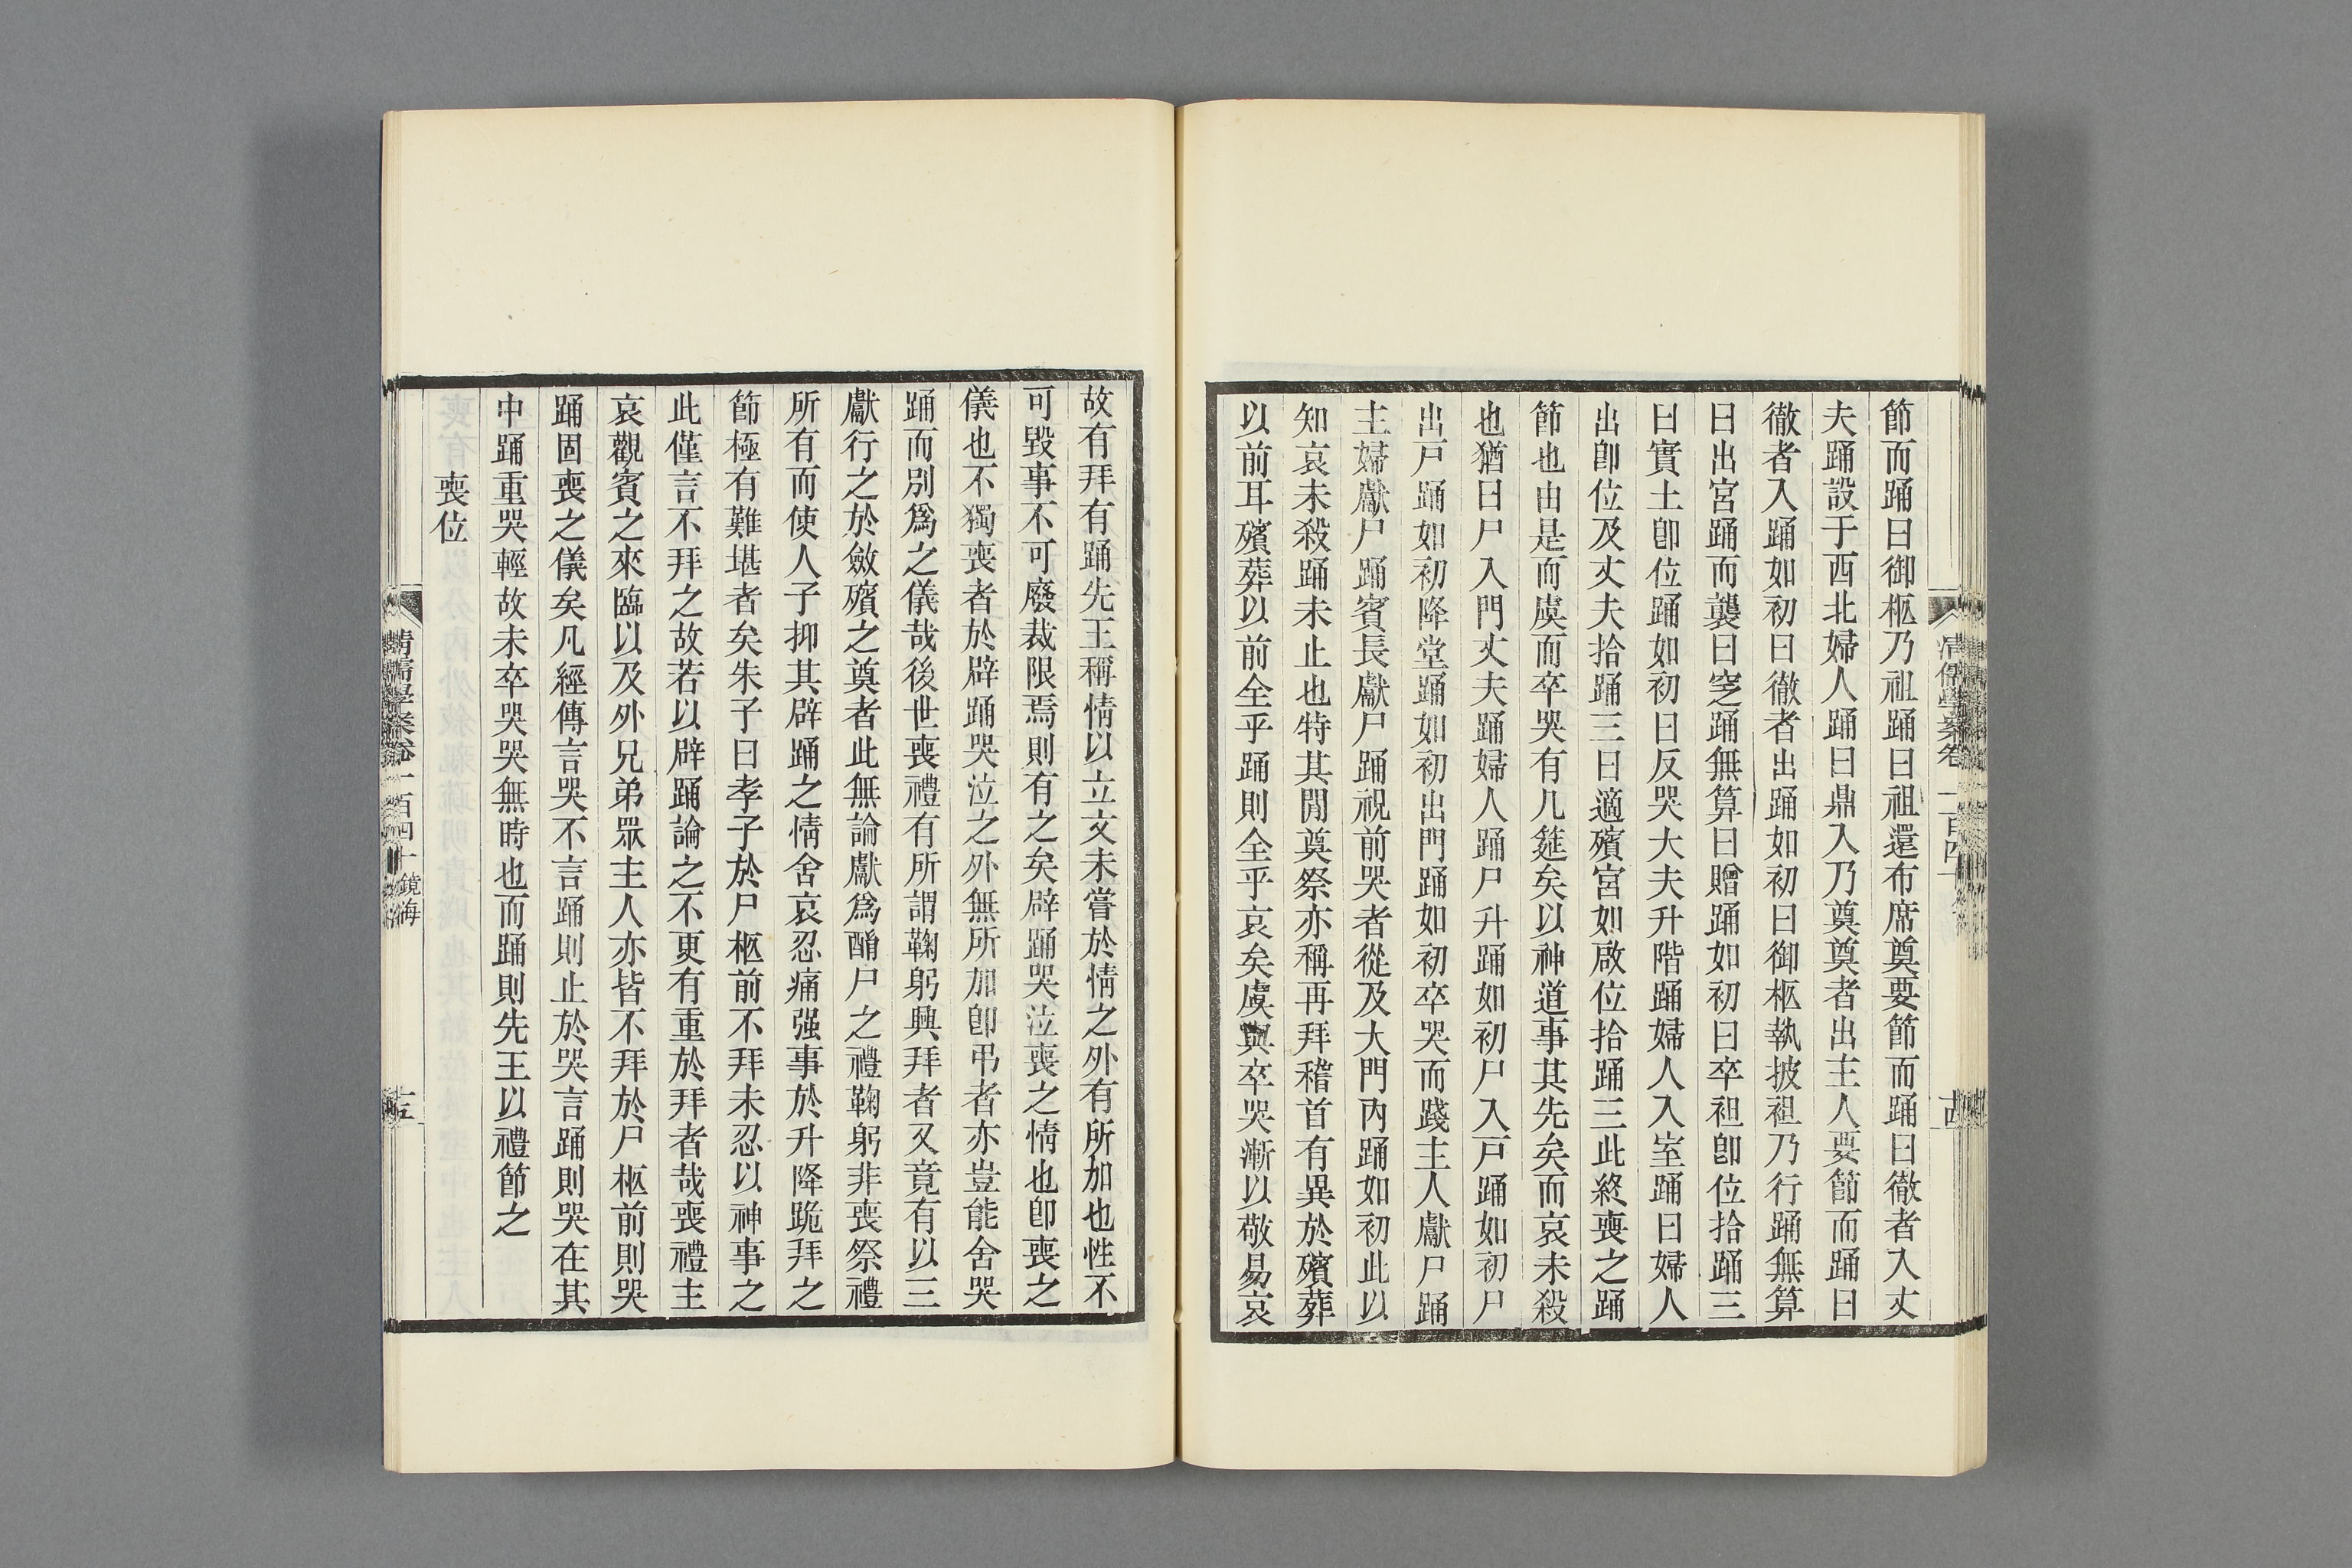 節而踊曰御柩乃祖踊曰祖還布席奠要節而踊曰徹者入丈
夫踊設于西北婦人踊曰鼎入乃奠奠者出主人要節而踊曰
徹者入踊如初曰徹者出踊如初曰御柩執披袒乃行踊無算
曰出宮踊而襲曰窆踊無算曰贈踊如初曰卒袒卽位拾踊三
曰實土卽位踊如初曰反哭大夫升階踊婦人入室踊曰婦人
出卽位及丈夫拾踊三曰適殯宮如啟位拾踊三此終喪之踊
節也由是而虞而卒哭有几筵矣以神道事其先矣而哀未殺
也猶曰尸入門丈夫踊婦人踊尸升踊如初尸入戸踊如初尸
出戸踊如初降堂踊如初出門踊如初卒哭而踐主人獻尸踊
主婦獻尸踊賓長獻尸踊祝前哭者從及大門內踊如初此以
知哀未殺踊未止也特其閒奠祭亦稱再拜稽首有異於殯葬
以前耳殯葬以前全乎踊則全乎哀矣虞與卒哭漸以敬易哀
清儒學案卷一百四十
十四
故有拜有踊先王稱情以立文未嘗於情之外有所加也性不
可毀事不可廢裁限焉則有之矣辟踊哭泣喪之情也卽喪之
儀也不獨喪者於辟踊哭泣之外無所加卽弔者亦豈能舍哭
踊而別爲之儀哉後世喪禮有所謂鞠躬興拜者又竟有以三
獻行之於斂殯之奠者此無論獻爲酳尸之禮鞠躬非喪祭禮
所有而使人子抑其辟踊之情舍哀忍痛强事於升降跪拜之
節極有難堪者矣朱子曰孝子於尸柩前不拜未忍以神事之
此僅言不拜之故若以辟踊論之不更有重於拜者哉喪禮主
哀觀賓之來臨以及外兄弟眾主人亦皆不拜於尸柩前則哭
踊固喪之儀矣凡經傳言哭不言踊則止於哭言踊則哭在其
中踊重哭輕故未卒哭哭無時也而踊則先王以禮節之
喪位
清儒學案卷一百四十 鏡海
十五